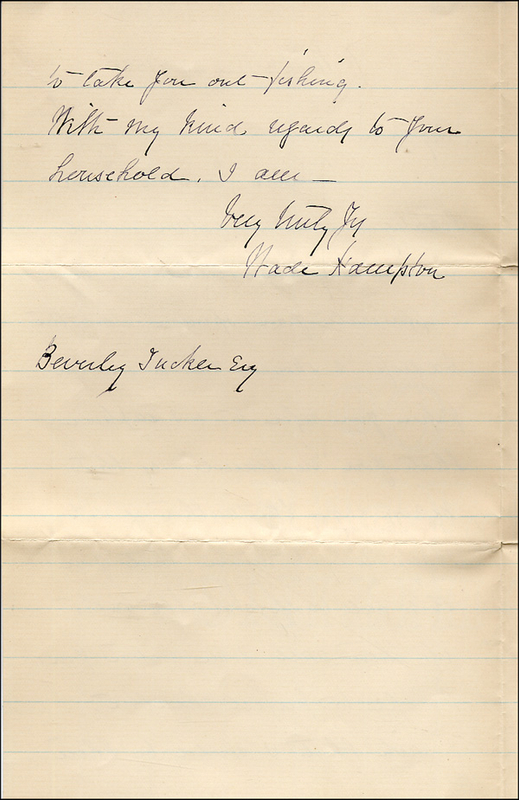 to take you out fishing.
With my kind regards to your
household. I am —
Very truly yrs
Wade Hampton
Beverley Tucker Esq